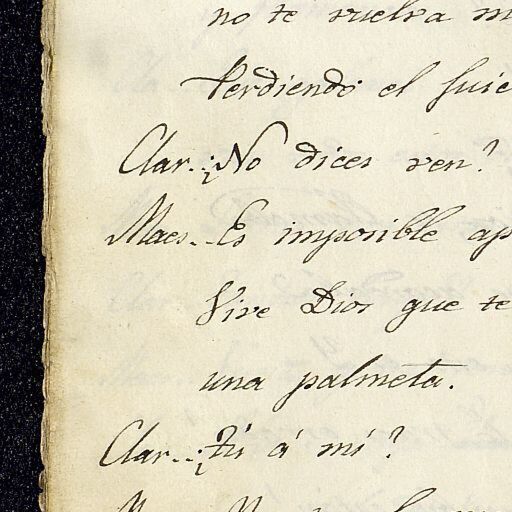 no te vuelva
Perdiendo el juic
Clar..¿No dices ven?
Maes..Es imposible ap
Vive Dios que te
una palmeta.
Clar..¿Tú á mí?